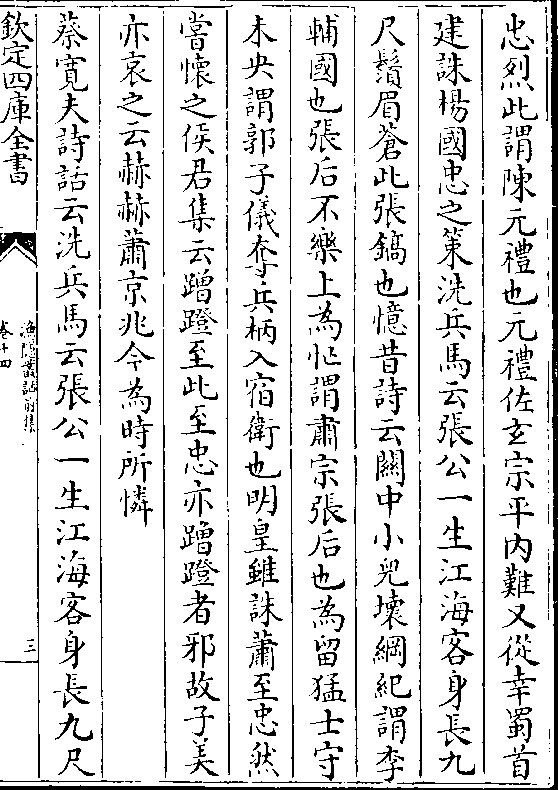 忠烈此謂陳元禮也元禮佐玄宗平内難又從幸蜀首
建誅楊國忠之策洗兵馬云張公一生江海客身長九
尺鬚眉蒼此張鎬也憶昔詩云關中小兒壞綱紀謂李
輔國也張后不樂上為忙謂肅宗張后也為留猛士守
未央謂郭子儀奪兵柄入宿衛也明皇雖誅蕭至忠然
嘗懷之侯君集云蹭蹬至此至忠亦蹭蹬者邪故子美
亦哀之云赫赫蕭京兆今為時所憐
蔡寛夫詩話云洗兵馬云張公一生江海客身長九尺
欽定四庫全書
漁隠叢話前集
卷十四
三